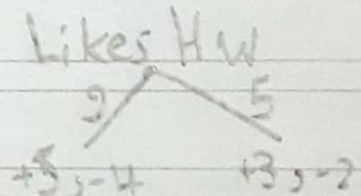 Likes HW
9 5
+5,-4 +3,-2